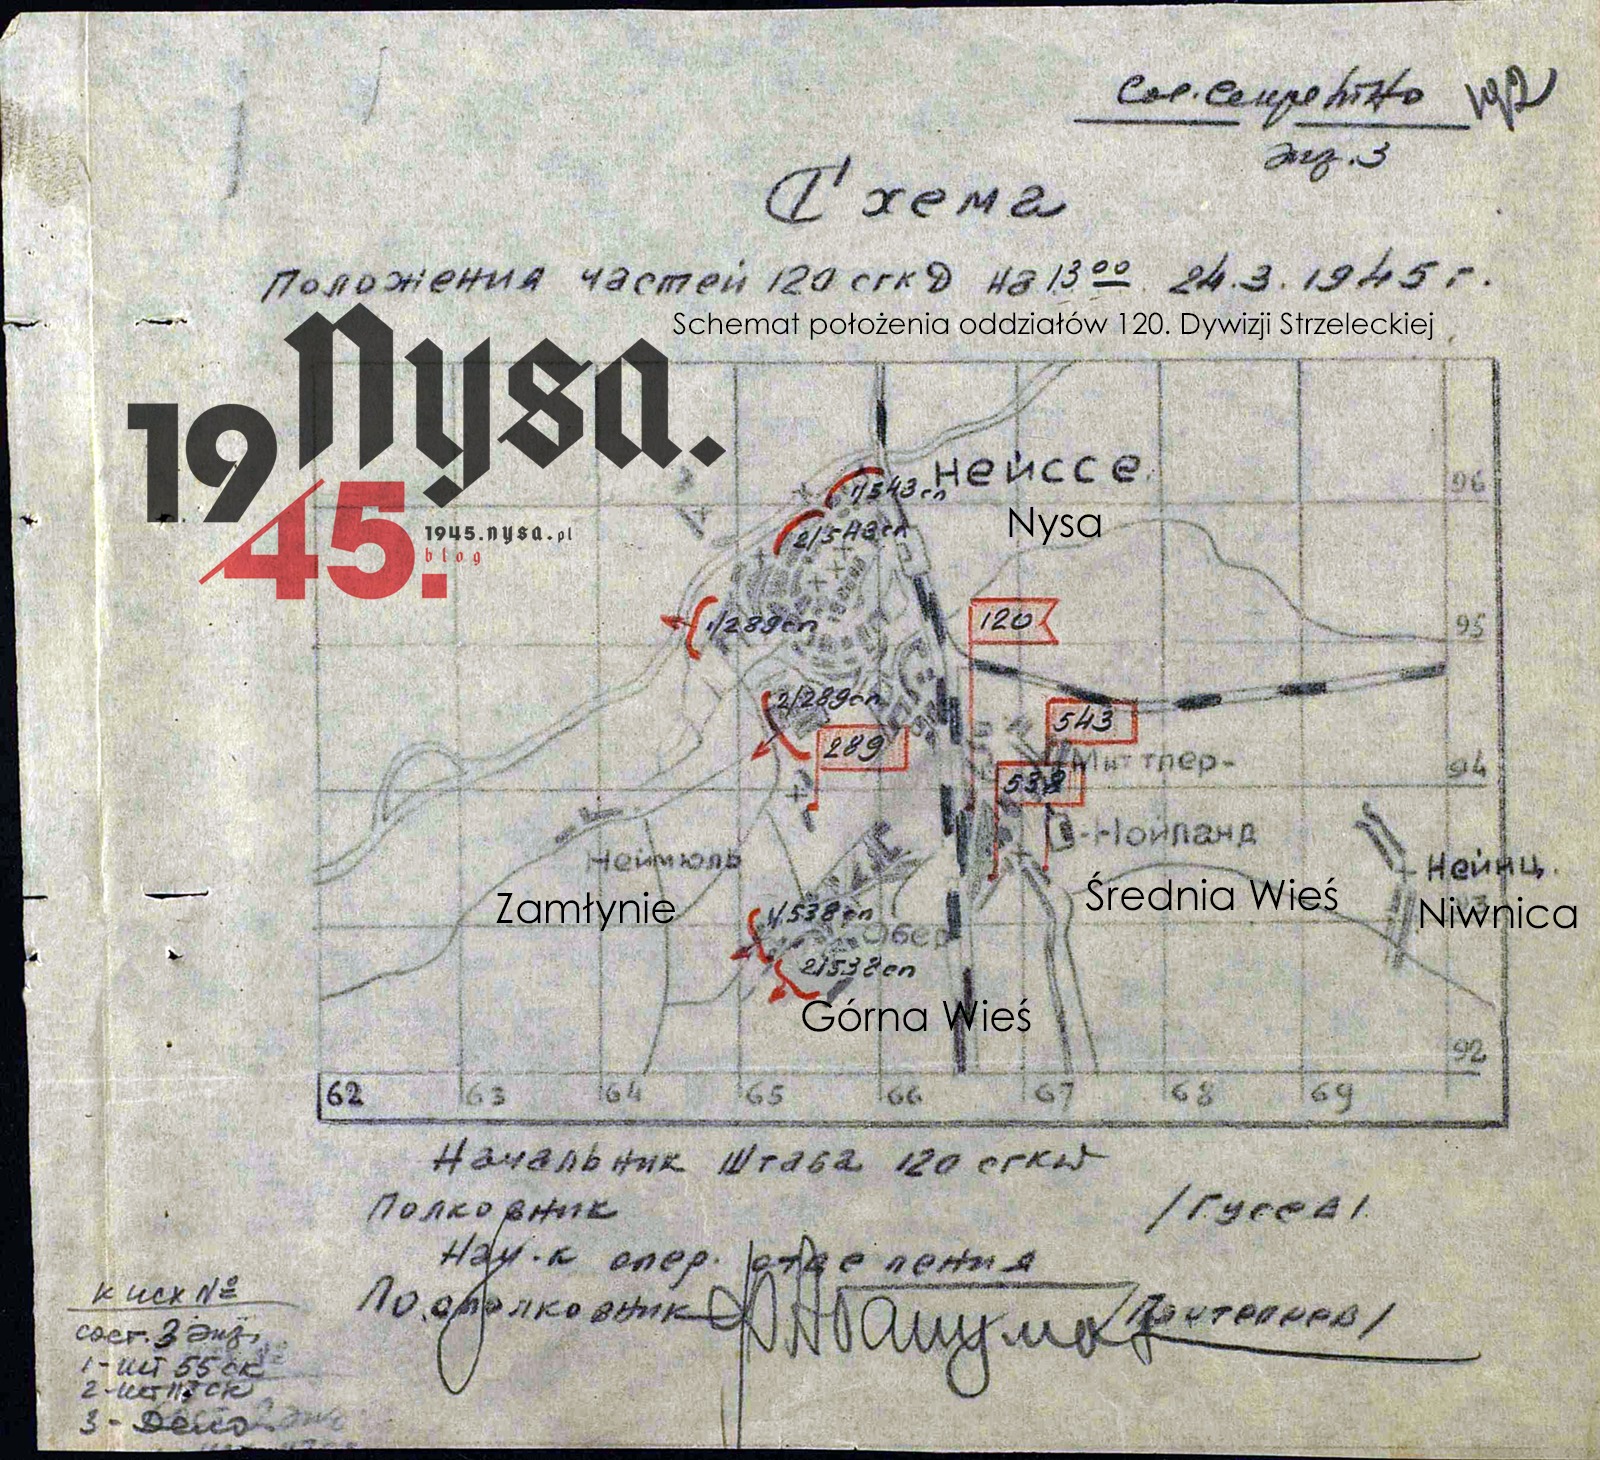 Сов. Секретно 192
Экз. 3
Схема
Положения частей 120 сгкд на 13 00 24.3.1945 г.
Schemat położenia oddziałów 120. Dywizji Strzeleckiej
Nysa.
1945.
1945.nysa.pl
blog
Нейссе
Nysa
1/543 сп
2/543 сп
1/289 сп
2/289 сп
289
120
543
538
Миттлер-
-Нойланд
Środnia Wieś
Неймюль
Zamłynie
Нейнц.
Niwnica
1/538 сп
Обер
2/538 сп
Górna Wieś
96
95
94
93
92
62 63 64 65 66 67 68 69
Начальник Штаба 120 сгкд
Полковник /Гусев/
Нач-к опер. отделения
Подполковник /Пантелеев/
к исх №
сост. 3 экз.
1-шт 55 ск
2-шт 117 ск
3- Дело